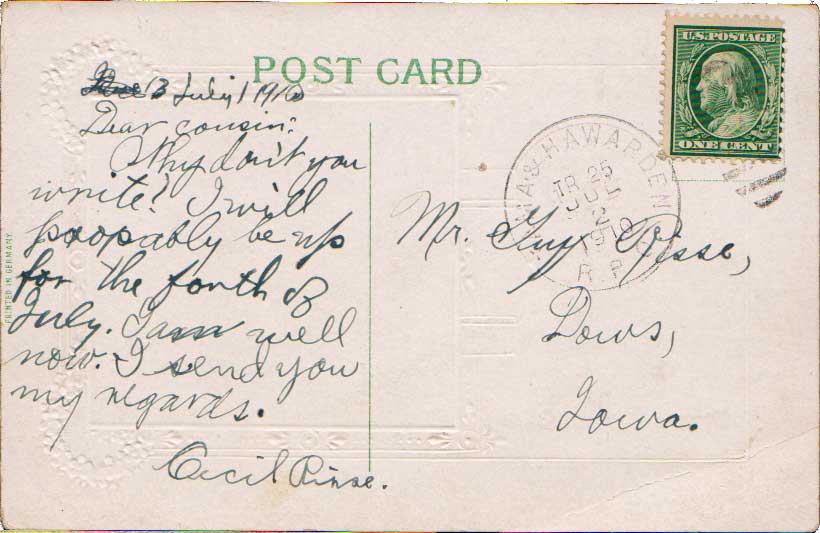 POST CARD
July 1 1910
Dear cousin:
Why don't you
write? I will
propably be up
for the forth of
July. I am well
now. I send you
my regards.
Cecil Risse.
U.S. POSTAGE
ONE CENT
& HAWARDEN
TR. 25
JUL
2
1910
R. P.
Mr. Guy Risse,
Dows,
Iowa.
PRINTED IN GERMANY